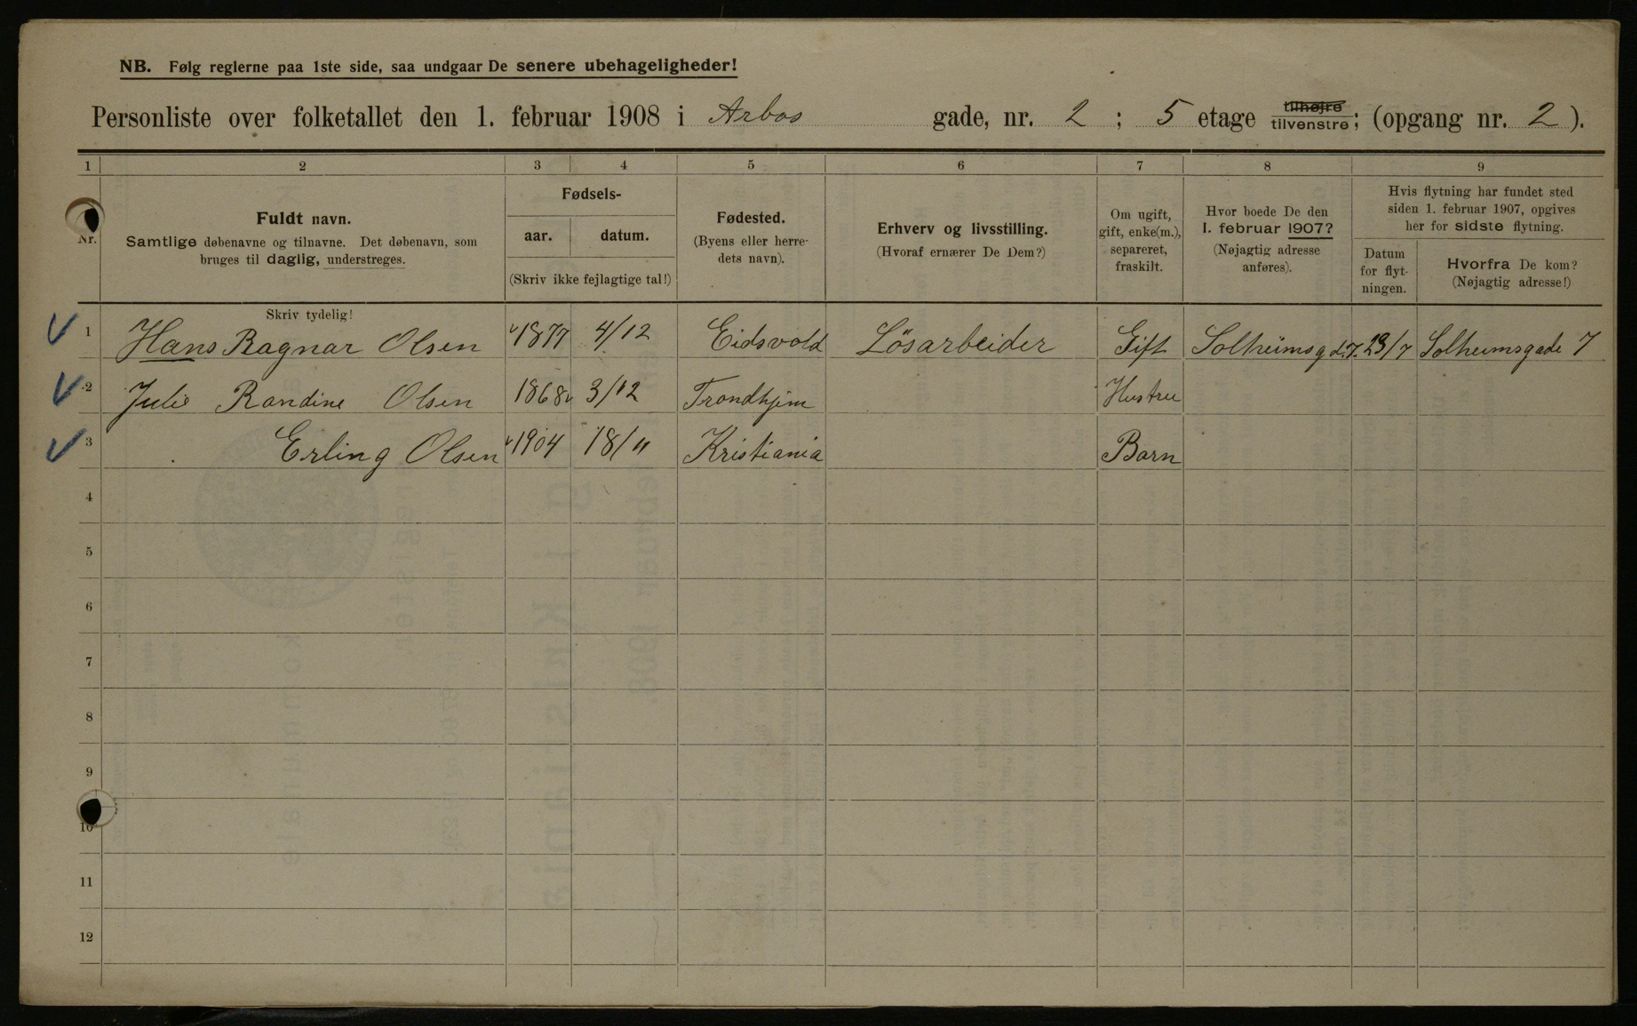 NB. Følg reglerne paa 1ste side, saa undgaar De senere ubehageligheder!
Personliste over folketallet den 1. februar 1908 i Arbos gade, nr. 2 ; 5 etage tilhøjre tilvenstre; (opgang nr. 2 ).
1 2 3 4 5 6 7 8 9
Nr.
Fuldt navn.
Samtlige døbenavne og tilnavne. Det døbenavn, som
bruges til daglig, understreges.
Skriv tydelig!
Fødsels-
aar. datum.
(Skriv ikke fejlagtige tal!)
Fødested.
(Byens eller herre-
dets navn).
Erhverv og livsstilling.
(Hvoraf ernærer De Dem?)
Om ugift,
gift, enke(m.),
separeret,
fraskilt.
Hvor boede De den
1. februar 1907?
(Nøjagtig adresse
anføres).
Hvis flytning har fundet sted
siden 1. februar 1907, opgives
her for sidste flytning.
Datum
for flyt-
ningen.
Hvorfra De kom?
(Nøjagtig adresse!)
1 Hans Ragnar Olsen 1877 4/12 Eidsvold Løsarbeider Gift Solheimsgd. 7. 23/7 Solheimsgade 7
2 Julie Randine Olsen 1868 3/12 Trondhjem Hustru
3 Erling Olsen 1904 18/11 Kristiania Barn
4
5
6
7
8
9
10
11
12